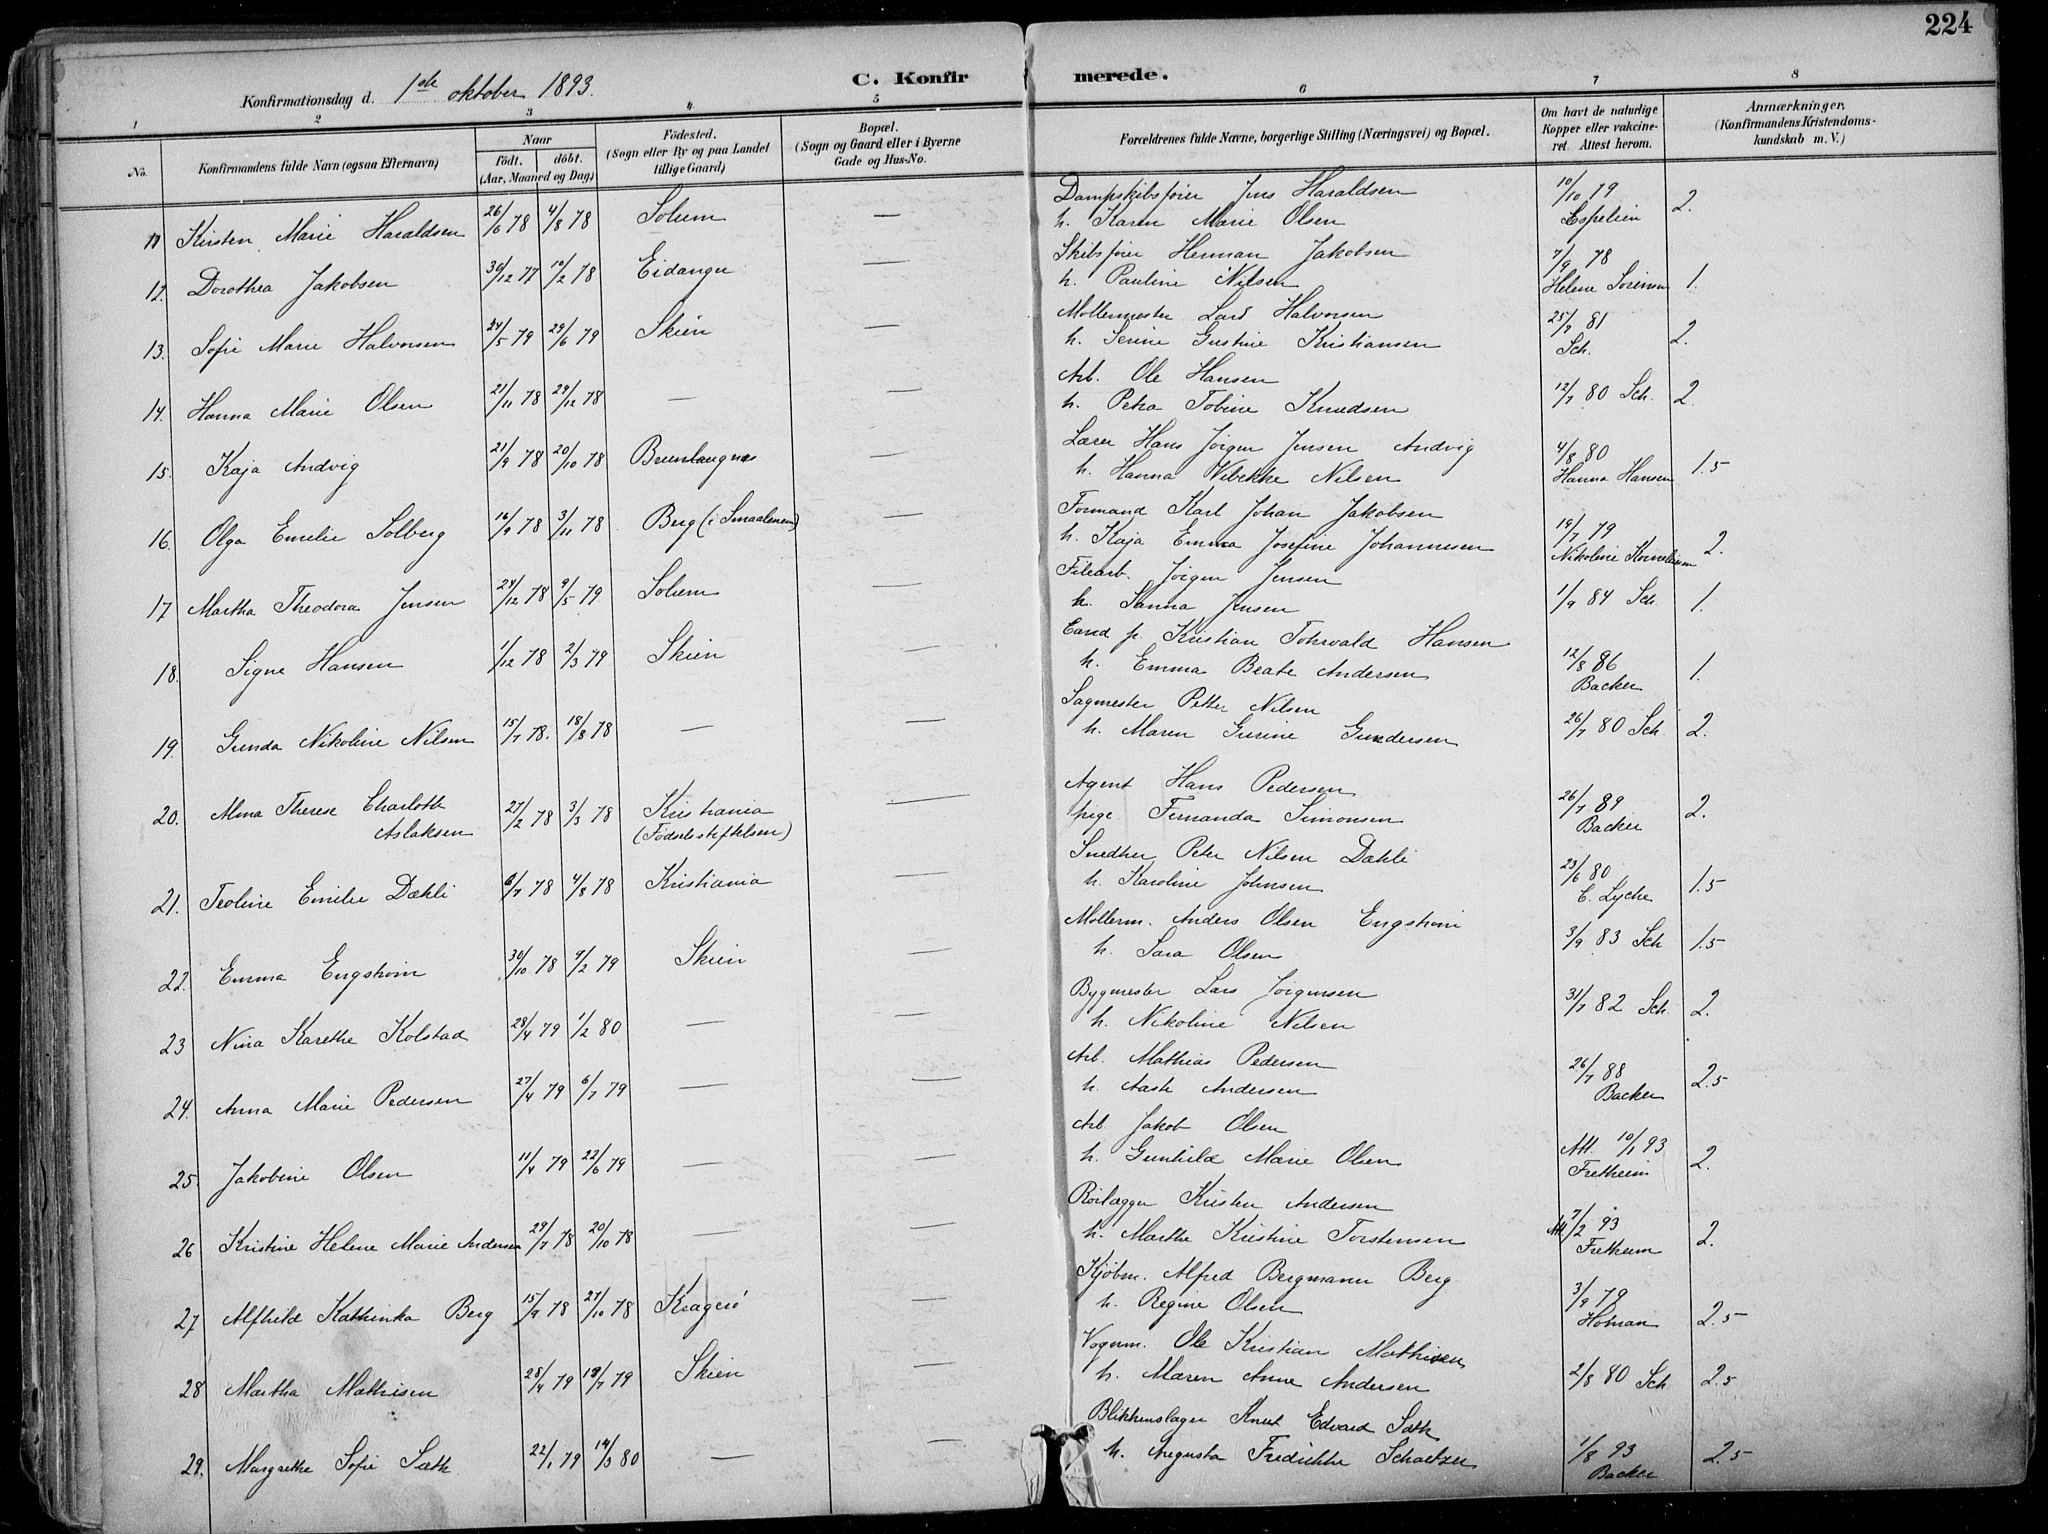 224
Konfirmationsdag d. 1ste oktober 1893.
C. Konfirmerede.
1 2 3 4 5 6 7 8
No.
Konfirmandens fulde Navn (ogsaa Efternavn)
Naar
födt. döbt.
(Aar, Maaned og Dag)
Födested.
(Sogn eller By og paa Landet
tillige Gaard)
Bopæl.
(Sogn og Gaard eller i Byerne
Gade og Hus-No.
Forældrenes fulde Navne, borgerlige Stilling (Næringsvei) og Bopæl.
Om havt de naturlige
Kopper eller vakcine-
ret. Attest herom.
Anmærkninger.
(Konfirmandens Kristendoms-
kundskab m. V.)
11 Kirsten Marie Haraldsen 26/6 78 4/8 78 Solum —
Dampskibsfører Jens Haraldsen
h. Karen Marie Olsen
10/10 79
Espelin
2.
12. Dorothea Jakobsen 30/12 77 10/2 78 Eidanger —
Skibsfører Herman Jakobsen
h. Pauline Nilsen
7/9 78
Helene Sørensen
1.
13. Sofie Marie Halvorsen 24/5 79 29/6 79 Skien —
Møllermester Lars Halvorsen
h. Serine Gustine Kristiansen
25/7 81
Sch.
2.
14. Hanna Marie Olsen 21/11 78 29/12 78 — —
Arb. Ole Hansen
h. Petra Tobine Knudsen
12/7 80 Sch.
2.
15. Kaja Andvig 21/9 78 20/10 78 Brunlangnes —
Lærer Hans Jørgen Jensen Andvig
h. Hanna Vibekke Nilsen
4/8 80
Hanna Hansen
1.5
16. Olga Emilie Solberg 16/9 78 3/11 78 Berg (i Smaalenene) —
Formand Karl Johan Jakobsen
h. Kaja Emma Josefine Johannesen
19/7 79
Nikoline Korneliussen
2.
17. Martha Theodora Jensen 24/12 78 9/5 79 Solum —
Filearb. Jørgen Jensen
h. Sanna Jensen
1/9 84 Sch.
1.
18. Signe Hansen 1/12 78 2/3 79 Skien —
Cand p. Kristian Tohrvald Hansen
h. Emma Beate Andersen
12/8 86
Backer
1.
19. Gunda Nikoline Nilsen 15/7 78. 18/8 78 — —
Sagmester Petter Nilsen
h. Maren Gurine Gundersen
26/7 80 Sch.
2.
20. Alma Therese Charlotte
Aslaksen
27/2 78 3/3 78 Kristiania
(Födselsstiftelsen)
—
Agent Hans Pedersen
pige Fernanda Simonsen
26/7 89
Backer
2.
21. Teoline Emilie Dæhli 6/7 78 4/8 78 Kristiania —
Snedker Peter Nilsen Dæhli
h. Karoline Johnsen
23/6 80
C. Lyche
1.5
22. Emma Engstrøm 30/10 78 9/2 79 Skien —
Møllerm. Anders Olsen Engstrøm
h. Sara Olsen
3/9 83 Sch
1.5
23 Nina Karethe Kolstad 28/4 79 1/2 80 — —
Bygmester Lars Jørgensen
h. Nikoline Nilsen
31/7 82 Sch.
2.
24. Anna Marie Pedersen 27/4 79 6/7 79 — —
Arb. Mathias Pedersen
h. Aaste Andersen
26/7 88
Backer
2.5
25. Jakobine Olsen 11/4 79 22/6 79 — —
Arb Jakob Olsen
h. Gunhild Marie Olsen
Att. 10/1 93
Fretheim
2.
26 Kristine Helene Marie Andersen 29/7 78 20/10 78 — —
Rørlægger Kristen Andersen
h. Marthe Kristine Torstensen
Att. 7/2 93
Fretheim
2.
27 Alfhild Kathinka Berg 15/9 78 27/10 78 Kragerø —
Kjøbm. Alfred Bergmann Berg
h. Regine Olsen
3/9 79
Homan
2.5
28 Martha Mathisen 28/4 79 13/7 79 Skien —
Vognm. Ole Kristian Mathisen
h. Maren Anne Andersen
2/8 80 Sch
2.5
29. Margrethe Sofie Sæth 22/1 79 14/3 80 — —
Blikkenslager Knut Edvard Sæth
h. Augusta Fredrikke Schæltzer
1/8 93
Backer
2.5